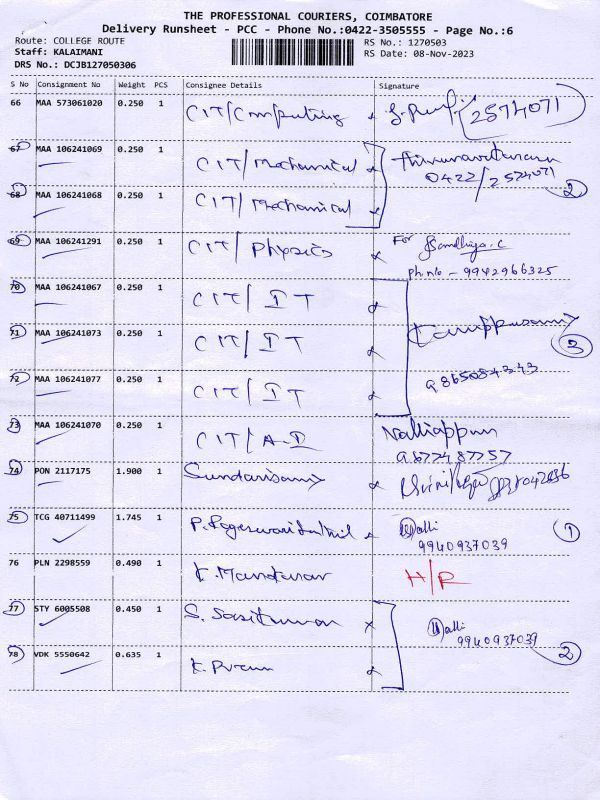 THE PROFESSIONAL COURIERS, COIMBATORE
Delivery Runsheet - PCC - Phone No.:0422-3505555 - Page No.:6
Route: COLLEGE ROUTE RS No.: 1270503
Staff: KALAIMANI RS Date: 08-Nov-2023
DRS No.: DCJB127050306
S No Consignment No Weight PCS Consignee Details Signature
66 MAA 573061020 0.250 1 CIT/Computing 2574071
67 MAA 106241069 0.250 1 CIT/Mechanical
0422/2574071
2
68 MAA 106241068 0.250 1 CIT/Mechanical
69 MAA 106241291 0.250 1 CIT/Physics For Sandhiya.c
ph.no - 9942966325
70 MAA 106241067 0.250 1 CIT/IT
71 MAA 106241073 0.250 1 CIT/IT 3
72 MAA 106241077 0.250 1 CIT/IT
73 MAA 106241070 0.250 1 CIT/A.I Nalliappan
9677487757
74 PON 2117175 1.900 1 Sundarisamy
75 TCG 40711499 1.745 1 Valli 1
9940937039
76 PLN 2298559 0.490 1 H/R
77 STY 6005508 0.450 1 Valli
9940937039
2
78 VDK 5550642 0.635 1